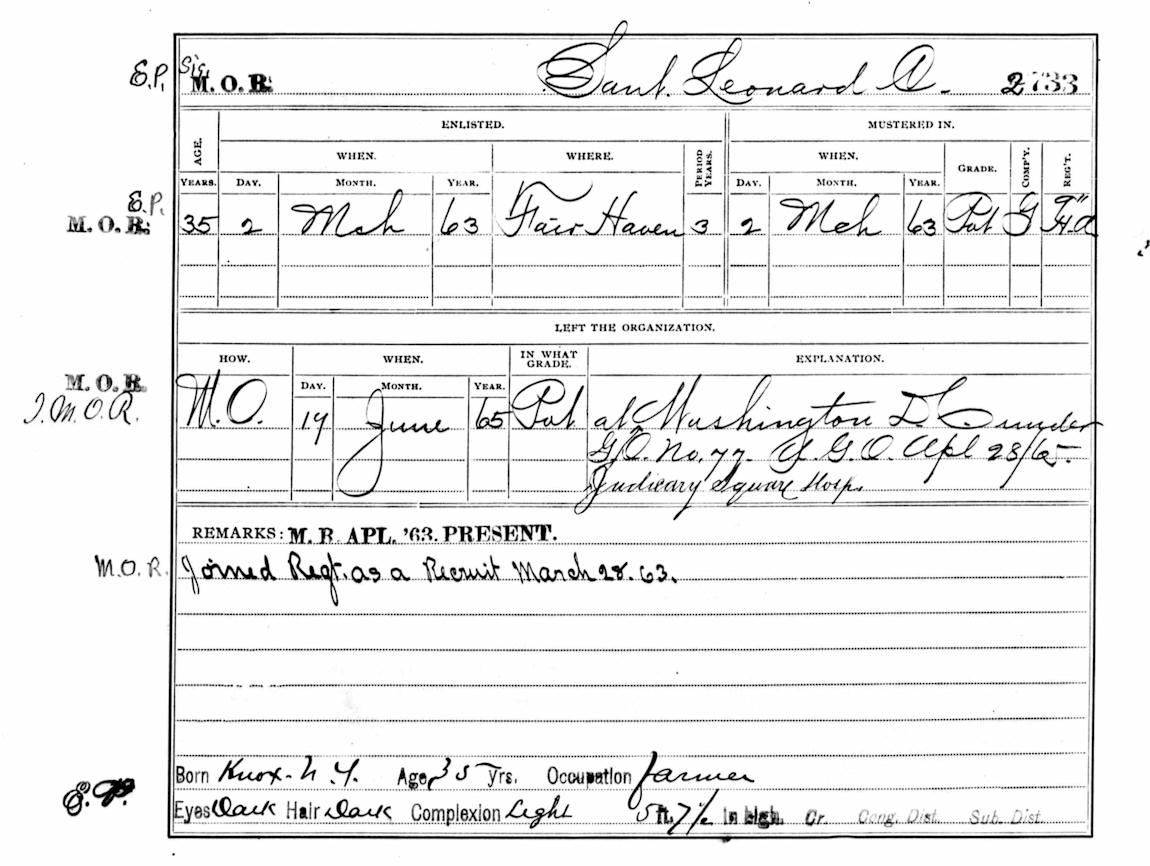 E.P. Sig. M.O.R. Sant. Leonard A. 2733
AGE. ENLISTED. MUSTERED IN.
WHEN. WHERE. PERIOD YEARS. WHEN. GRADE. COMP'Y. REG'T.
YEARS. DAY. MONTH. YEAR. DAY. MONTH. YEAR.
E.P.
M.O.R. 35 2 Mch 63 Fair Haven 3 2 Mch 63 Pvt G 9" H.A
LEFT THE ORGANIZATION.
HOW. WHEN. IN WHAT GRADE. EXPLANATION.
DAY. MONTH. YEAR.
M.O.R. M.O. 19 June 65 Pvt at Washington D C under
I.M.O.R. G.O. No. 77. A.G.O. Apl 28/65.
Judicary Square Hosp.
REMARKS: M. R. APL. '63. PRESENT.
M.O.R. Joined Regt. as a Recruit March 28. 63.
Born Knox- N.Y. Age 35 yrs. Occupation farmer
E.P.
Eyes Dark Hair Dark Complexion Light 5 ft. 7½ In high. Cr. Cong. Dist. Sub. Dist.